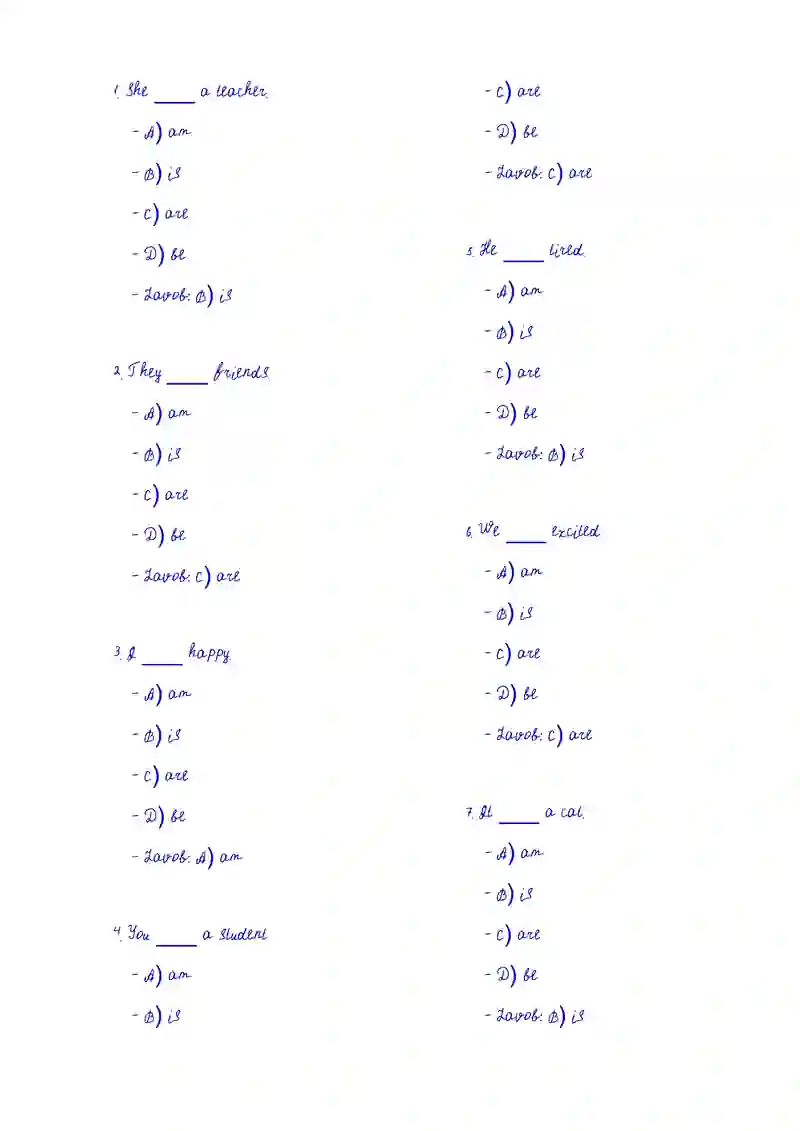 1. She ____ a teacher.
- A) am
- B) is
- C) are
- D) be
- Javob: B) is
2. They ____ friends.
- A) am
- B) is
- C) are
- D) be
- Javob: C) are
3. I ____ happy.
- A) am
- B) is
- C) are
- D) be
- Javob: A) am
4. You ____ a student
- A) am
- B) is
- C) are
- D) be
- Javob: C) are
5. He ____ tired.
- A) am
- B) is
- C) are
- D) be
- Javob: B) is
6. We ____ excited
- A) am
- B) is
- C) are
- D) be
- Javob: C) are
7. It ____ a cat.
- A) am
- B) is
- C) are
- D) be
- Javob: B) is